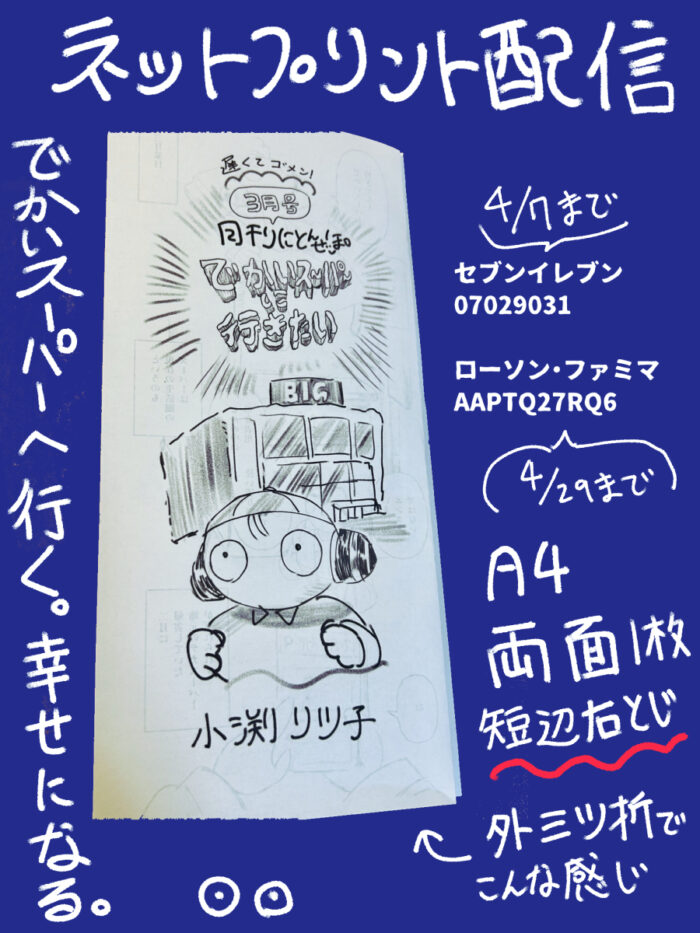 ネットプリント配信
でかいスーパーへ行く。幸せになる。
遅くてゴメン!
3月号
月刊にとんせっぽ。
でかいスーパー
に
行きたい
BIG
小渕リツ子
4/7まで
セブンイレブン
07029031
ローソン・ファミマ
AAPTQ27RQ6
4/29まで
A4
両面1枚
短辺右とじ
外三ツ折で
こんな感じ